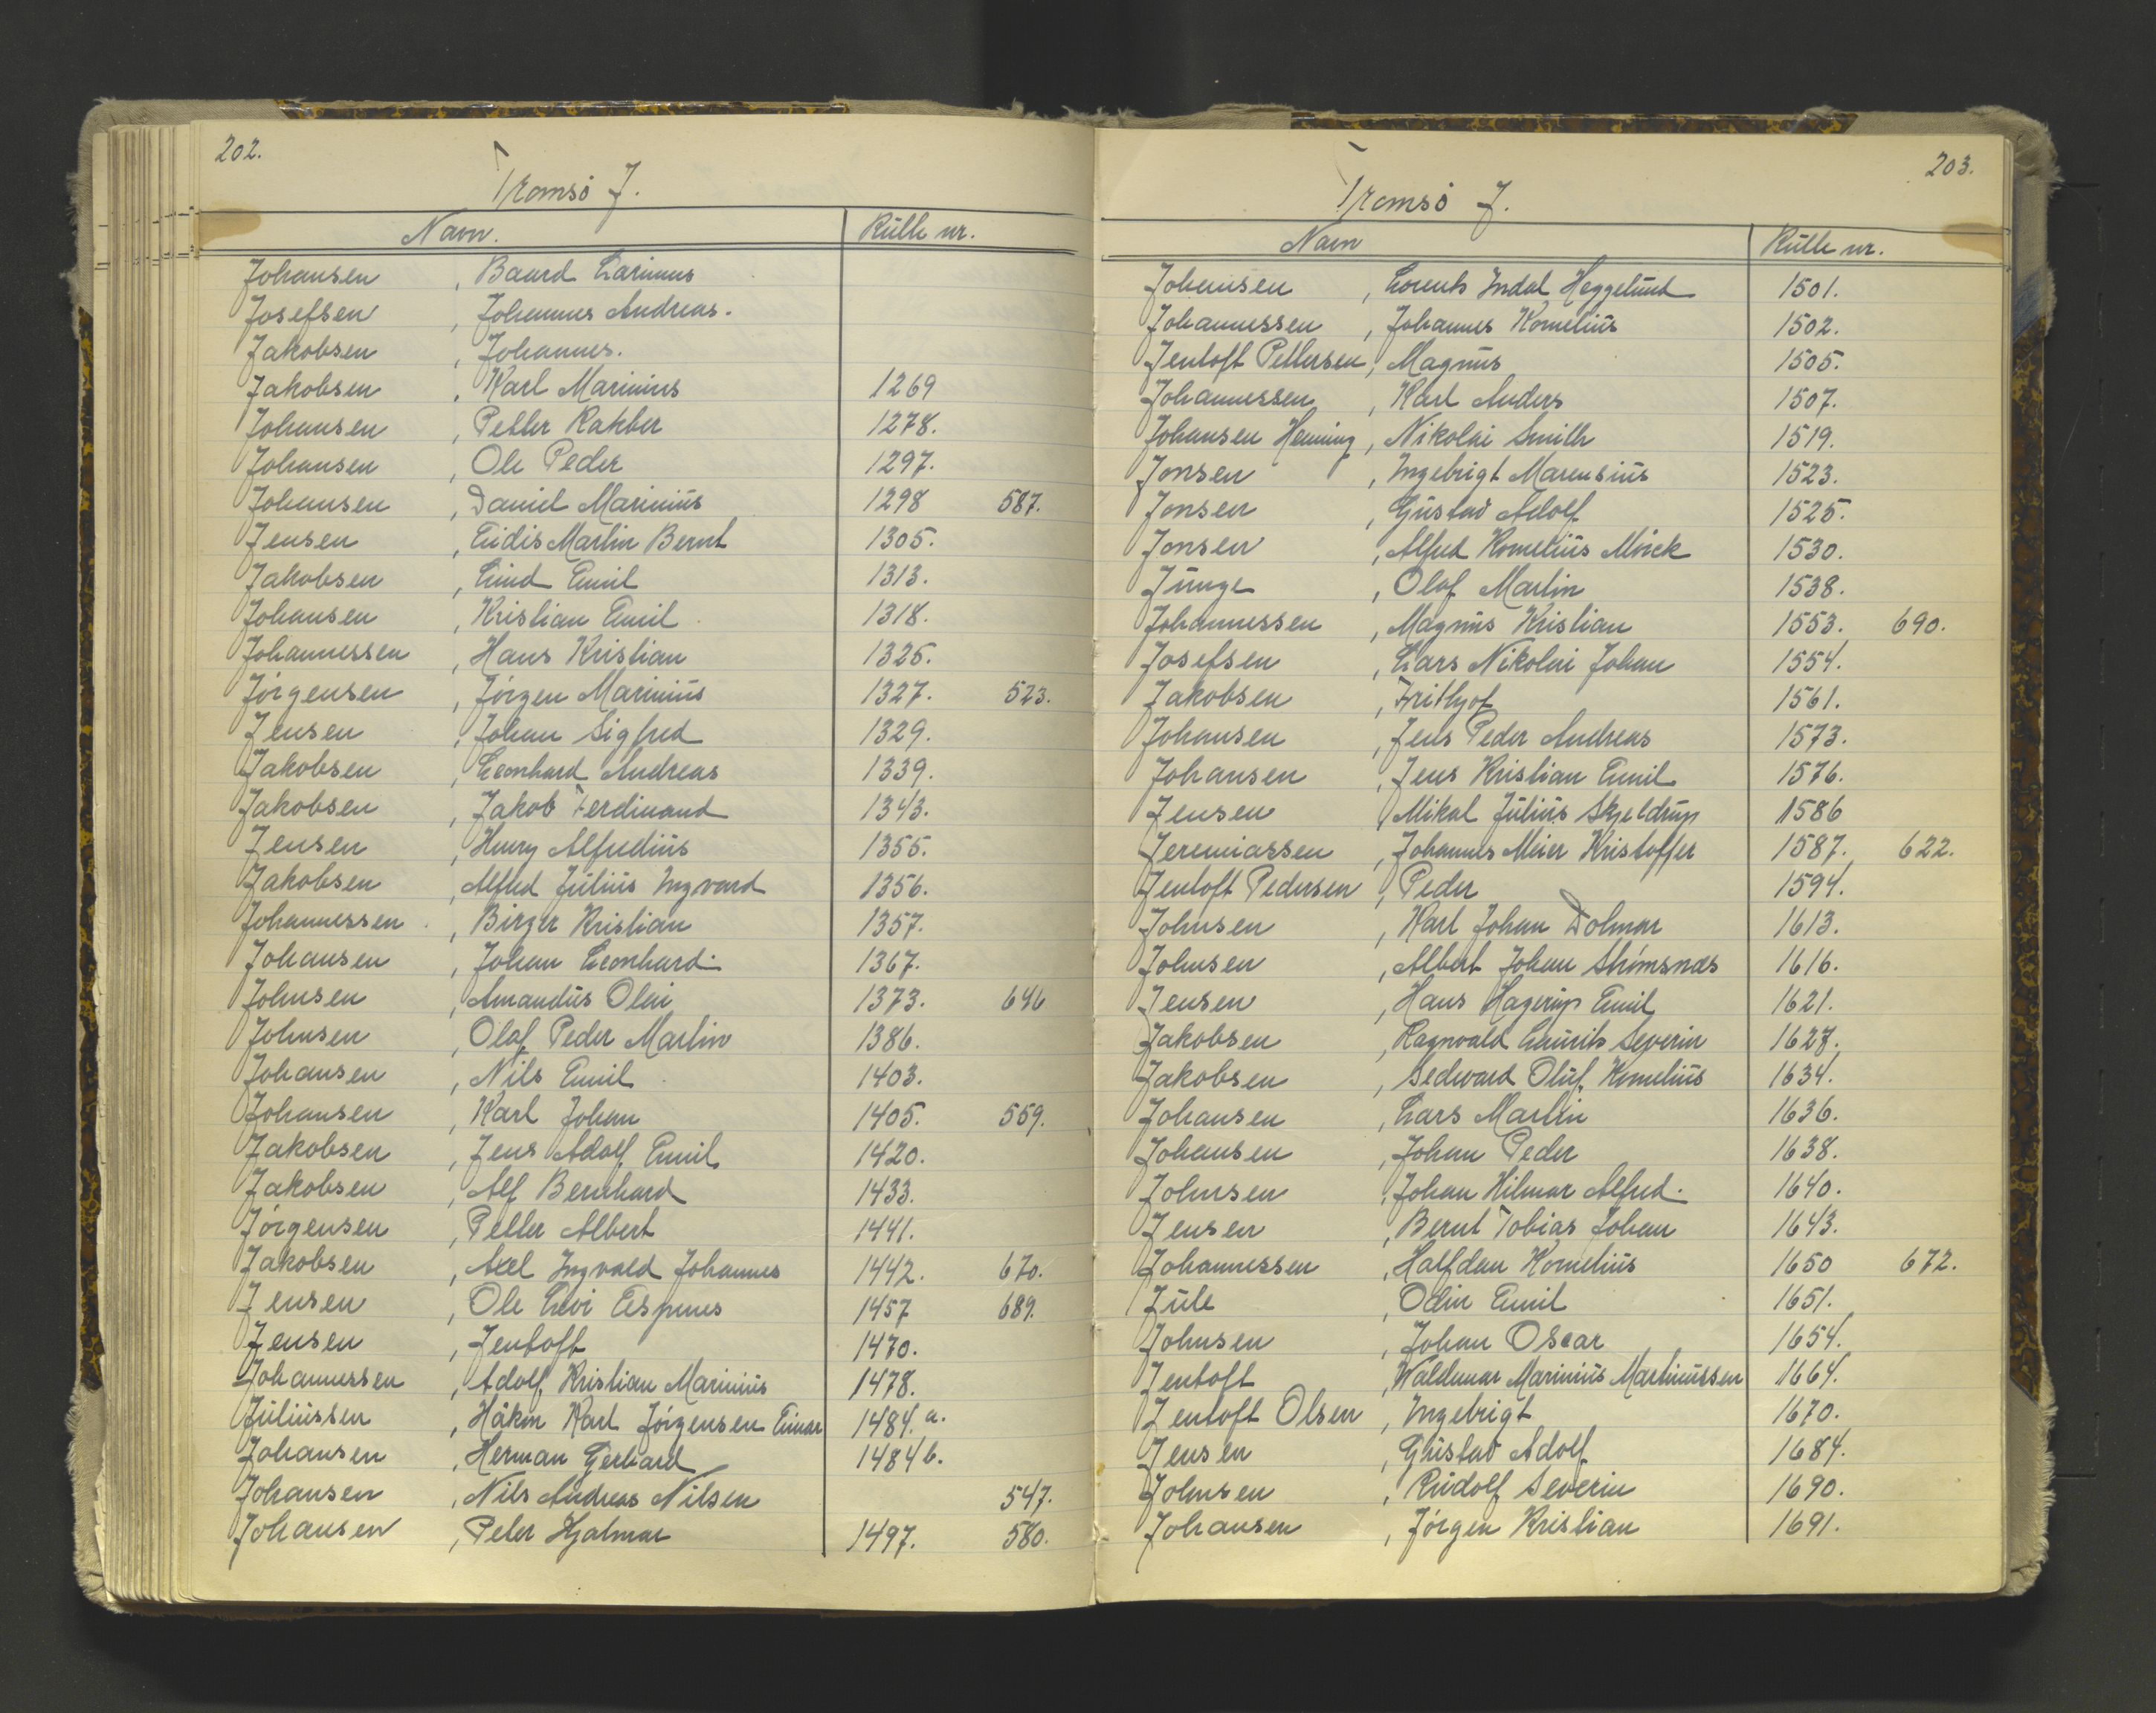 202.
Tromsø J.
Navn. Rulle nr.
Johansen , Baard Larinus
Josefsen , Johannes Andreas.
Jakobsen , Johannes.
Jakobsen , Karl Marinius 1269
Johansen , Petter 1278.
Johansen , Ole Peder 1297.
Johansen , Daniel Marinius 1298 587.
Jensen , Eidis Martin Bernt 1305.
Jakobsen , Lind Emil 1313.
Johansen , Kristian Emil 1318.
Johannessen , Hans Kristian 1325.
Jørgensen , Jørgen Marinius 1327. 523.
Jensen , Johan Sigfred 1329.
Jakobsen , Leonhard Andreas 1339.
Jakobsen , Jakob Ferdinand 1343.
Jensen , Henry Alfredius 1355.
Jakobsen , Alfred Julius Ingvard 1356.
Johannessen , Birger Kristian 1357.
Johansen , Johan Leonhard. 1367.
Johnsen , Amandus Olai 1373. 646
Johnsen , Olaf Peder Martin 1386.
Johansen , Nils Emil 1403.
Johansen , Karl Johan 1405. 559.
Jakobsen , Jens Adolf Emil 1420.
Jakobsen , Alf Bernhard 1433.
Jørgensen , Petter Albert 1441.
Jakobsen , Axel Ingvald Johannes 1442. 670.
Jensen , Ole Levi Espenes 1457 689.
Jensen , Jentoft 1470.
Johannessen , Adolf Kristian Marinius 1478.
Juliussen , Håkon Karl Jörgensen Einar 1484. a.
Johansen , Herman Gerhard 1484 b.
Johansen , Nils Andreas Nilsen 547.
Johansen , Peter Hjalmar 1497. 580.
203.
Tromsø J.
Navn Rulle nr.
Johansen , Lorents Indal Heggelund 1501.
Johannessen , Johannes Kornelius 1502.
Jentoft Pettersen , Magnus 1505.
Johannessen , Karl Anders 1507.
Johansen Henning , Nikolai Smith 1519.
Jonsen , Ingebrigt Marensius 1523.
Jonsen , Gustav Adolf 1525.
Jonsen , Alfred Kornelius Mörck 1530.
Junge , Olaf Martin 1538.
Johannessen , Magnus Kristian 1553. 690.
Josefsen , Lars Nikolai Johan 1554.
Jakobsen , Frithjof 1561.
Johansen , Jens Peder Andreas 1573.
Johansen , Jens Kristian Emil 1576.
Jensen , Mikal Julius Skjeldrup 1586
Jeremiassen , Johannes Meier Kristoffer 1587. 622.
Jentoft Pedersen , Peder 1594.
Johnsen , Karl Johan Dolmar 1613.
Johnsen , Albert Johan Strömsnæs 1616.
Jensen , Hans Hagerup Emil 1621.
Jakobsen , Ragnvald Laurits Severin 1627.
Jakobsen , Sedevard Oluf Kornelius 1634.
Johansen , Lars Martin 1636.
Johansen , Johan Peder 1638.
Johnsen , Johan Hilmar Alfred. 1640.
Jensen , Bernt Tobias Johan 1643.
Johannessen , Halfdan Kornelius 1650 672.
Jule , Odin Emil 1651.
Johnsen , Johan Oscar 1654.
Jentoft , Waldemar Marinius Martinussen 1664.
Jentoft Olsen , Ingebrigt 1670.
Jensen , Gustav Adolf 1684.
Johnsen , Rudolf Severin 1690.
Johansen , Jörgen Kristian 1691.